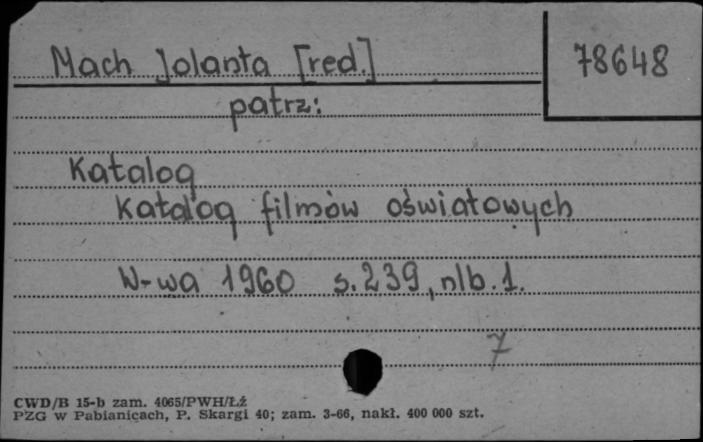 Mach Jolanta [red.]
78648
patrz:
Katalog
Katalog filmów oświatowych
W-wa 1960 s. 239, nlb. 1.
7
CWD/B 15-b zam. 4065/PWH/Łź
PZG w Pabianicach, P. Skargi 40; zam. 3-66, nakł. 400 000 szt.